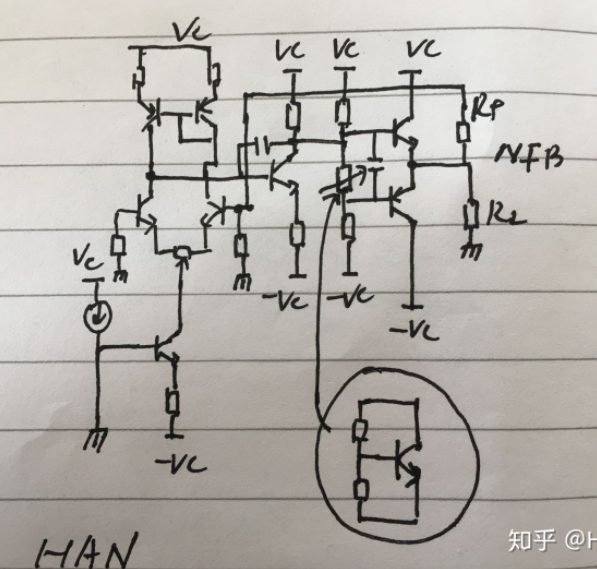 Vc
Vc Vc Vc
RF
NFB
RL
Vc
-Vc -Vc
-Vc
-Vc
HAN
知乎 @H